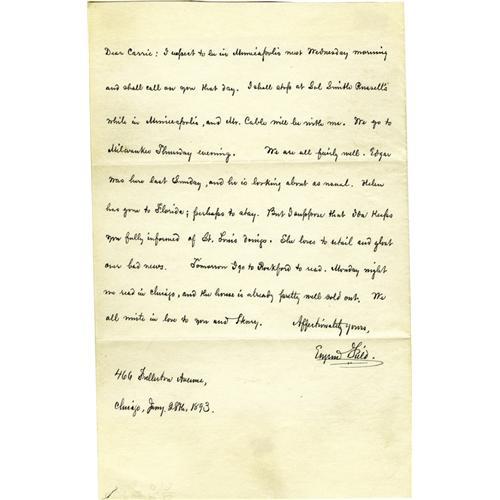 Dear Carrie: I expect to be in Minneapolis next Wednesday morning
and shall call on you that day. I shall stop at Sol Smith Russell's
while in Minneapolis, and Mr. Cable will be with me. We go to
Milwaukee Thursday evening. We are all fairly well. Edgar
was here last Sunday, and he is looking about as usual. Helen
has gone to Florida; perhaps to stay. But I suppose that Ida keeps
you fully informed of St. Louis doings. She loves to retail and gloat
over bad news. Tomorrow I go to Rockford to read. Monday night
we read in Chicago, and the house is already pretty well sold out. We
all unite in love to you and Henry. Affectionately yours,
Eugene Field.
466 Fullerton Avenue,
Chicago, Jany. 28th, 1893.